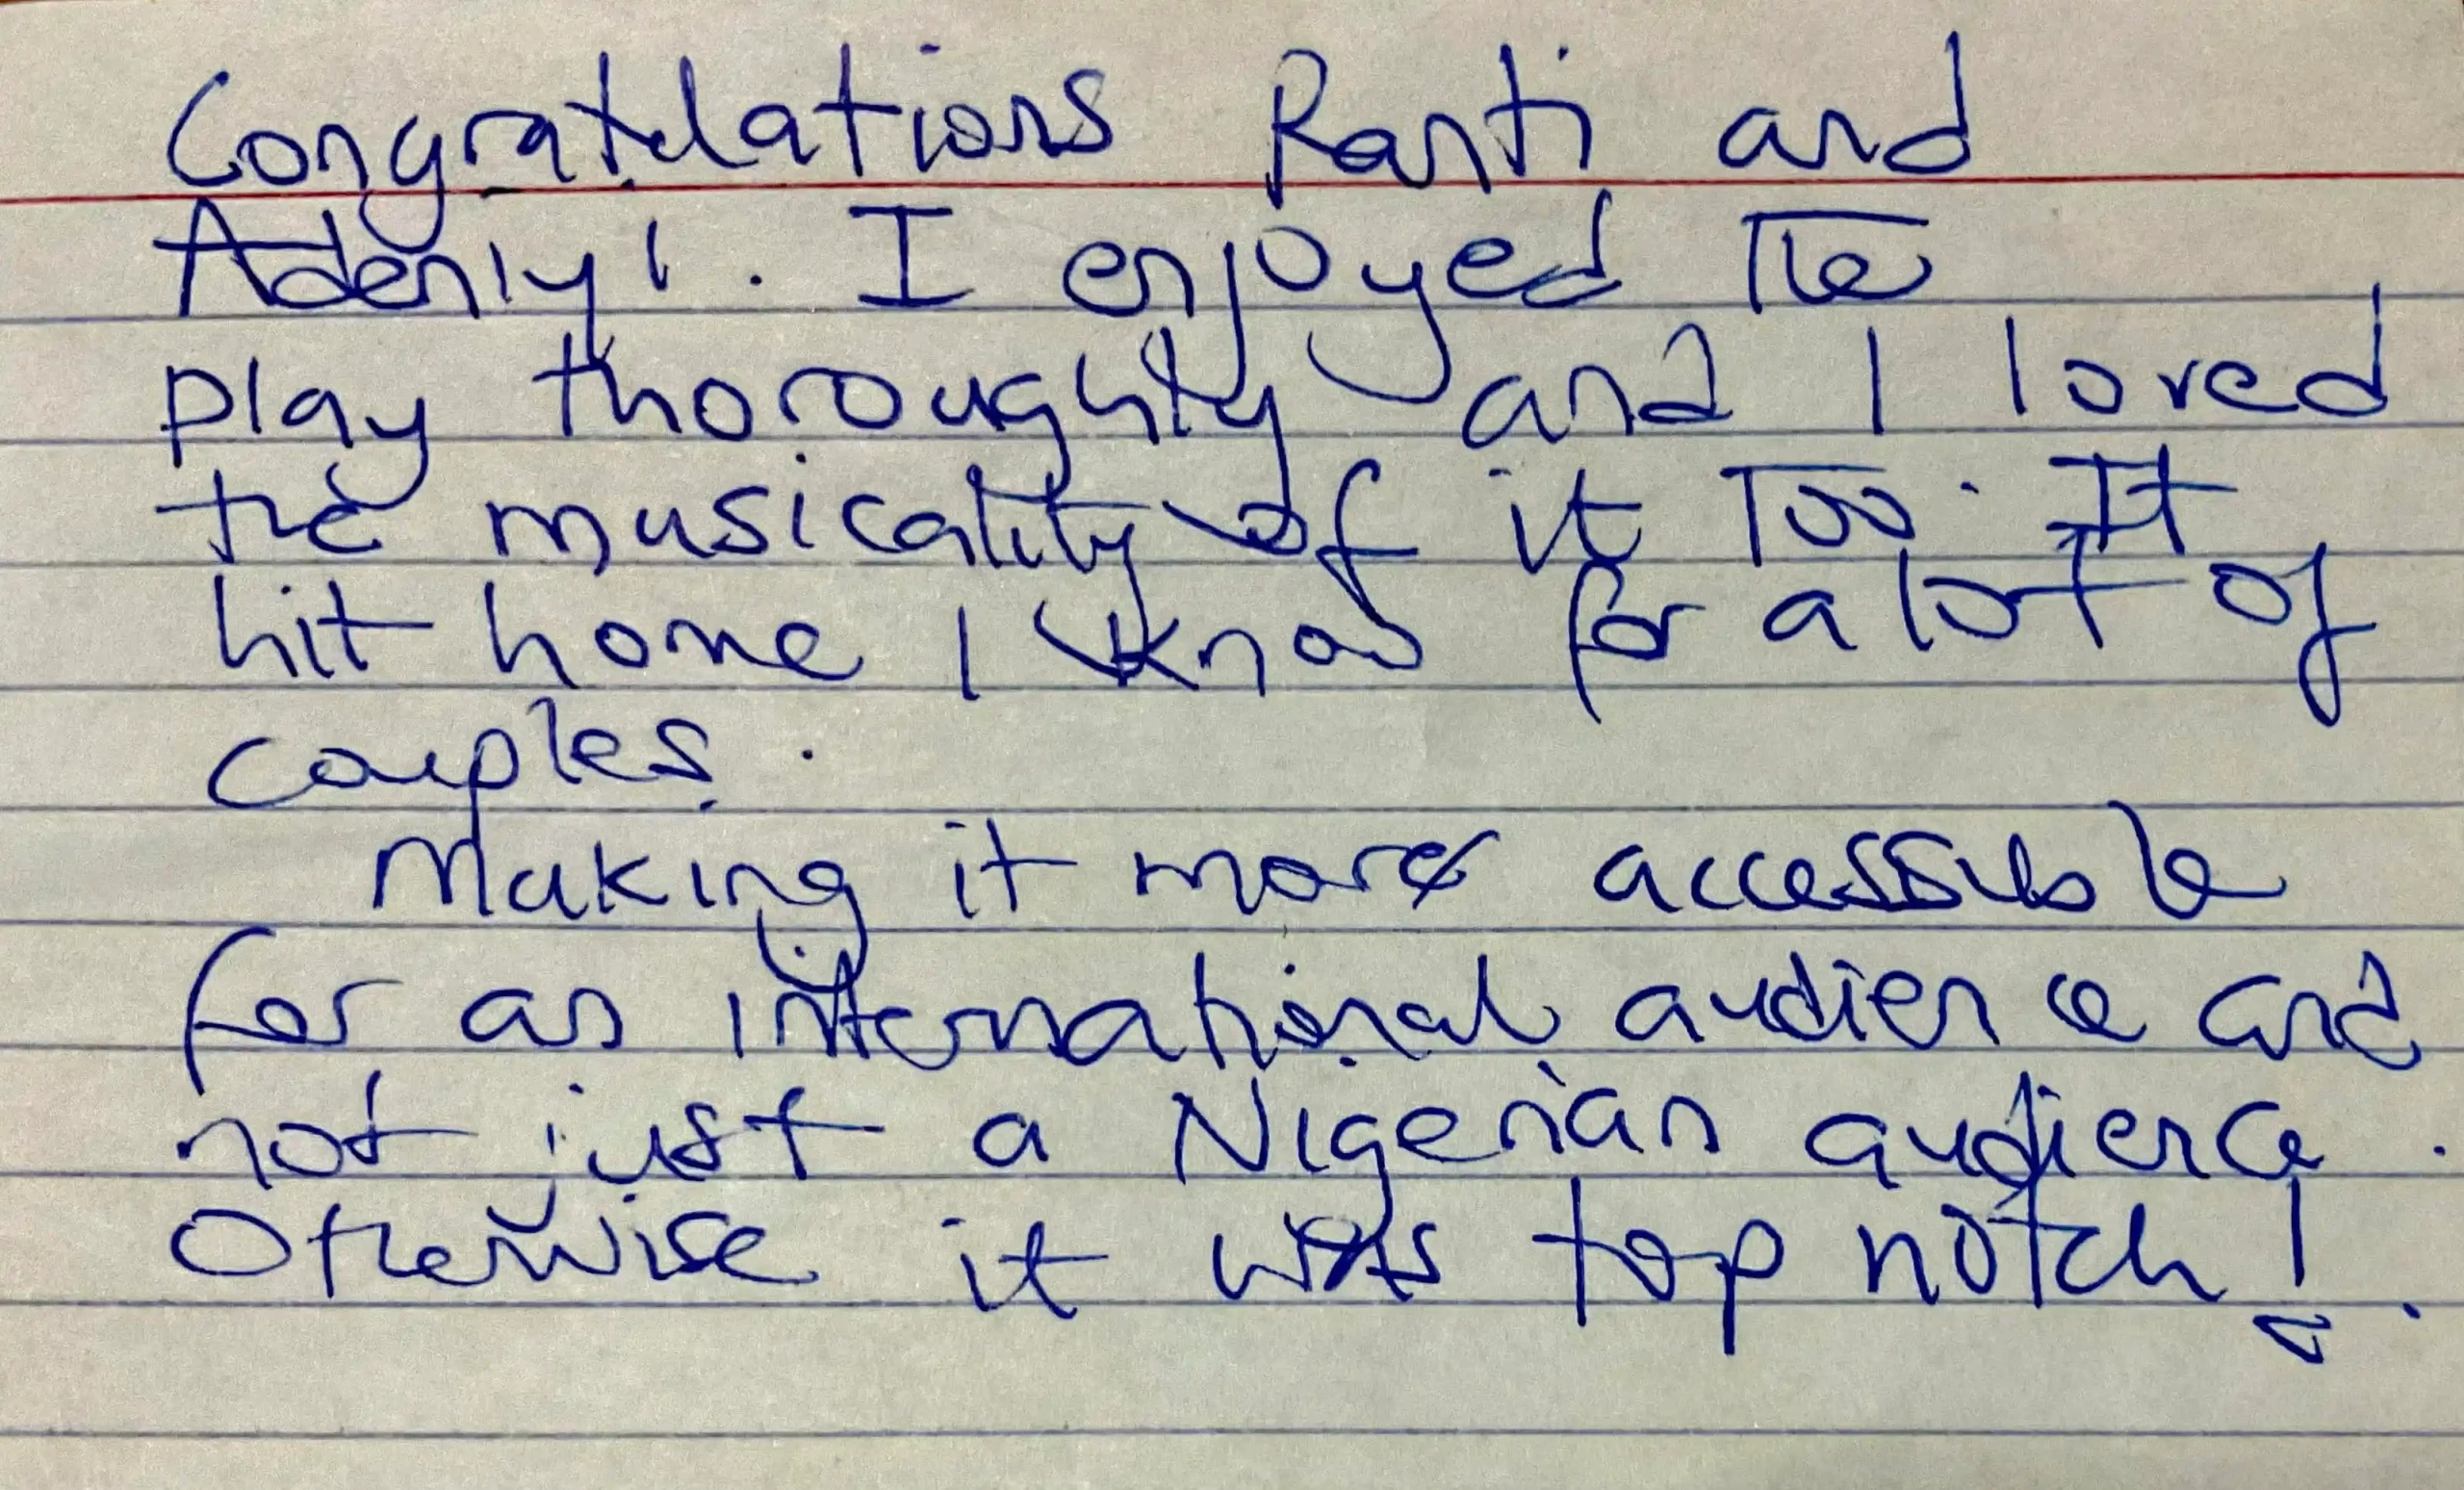 Congratulations Ranti and
Adeniyi. I enjoyed the
play thoroughly and I loved
the musicality of it too. It
hit home I know for a lot of
couples.
Making it more accessible
for an international audience and
not just a Nigerian audience.
Otherwise it was top notch!